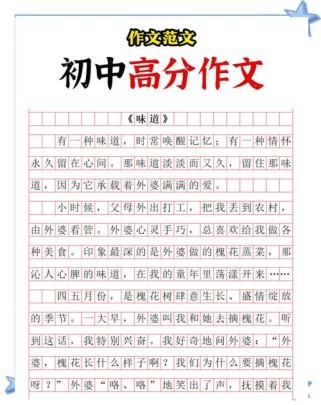 作文范文
初中高分作文
《味道》
有一种味道，时常唤醒记忆；有一种情怀
永久留在心间。那味道淡淡而又久，留住那味
道，因为它承载着外婆满满的爱。
小时候，父母外出打工，把我丢到农村，
由外婆看管。外婆心灵手巧，总喜欢给我做各
种美食。印象最深的是外婆做的槐花蒸菜，那
沁人心脾的味道，在我的童年里荡漾开来……
四五月份，是槐花树肆意生长、盛情绽放
的季节。一大早，外婆叫我和她去摘槐花。听
到这话，我特别兴奋。我好奇地问外婆：“外
婆，槐花长什么样子啊？我们为什么要摘槐花
呀？”外婆“咯、咯”地笑出了声，抚摸着我